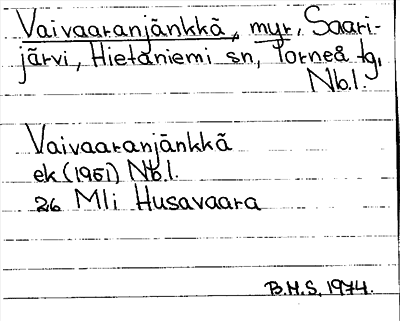 Vaivaaranjänkkä, myr, Saari-
järvi, Hietaniemi sn, Torneå tg,
Nb.l.
Vaivaaranjänkkä
ek (1951) Nb.l.
26 Mli Husavaara
B.H.S, 1974.